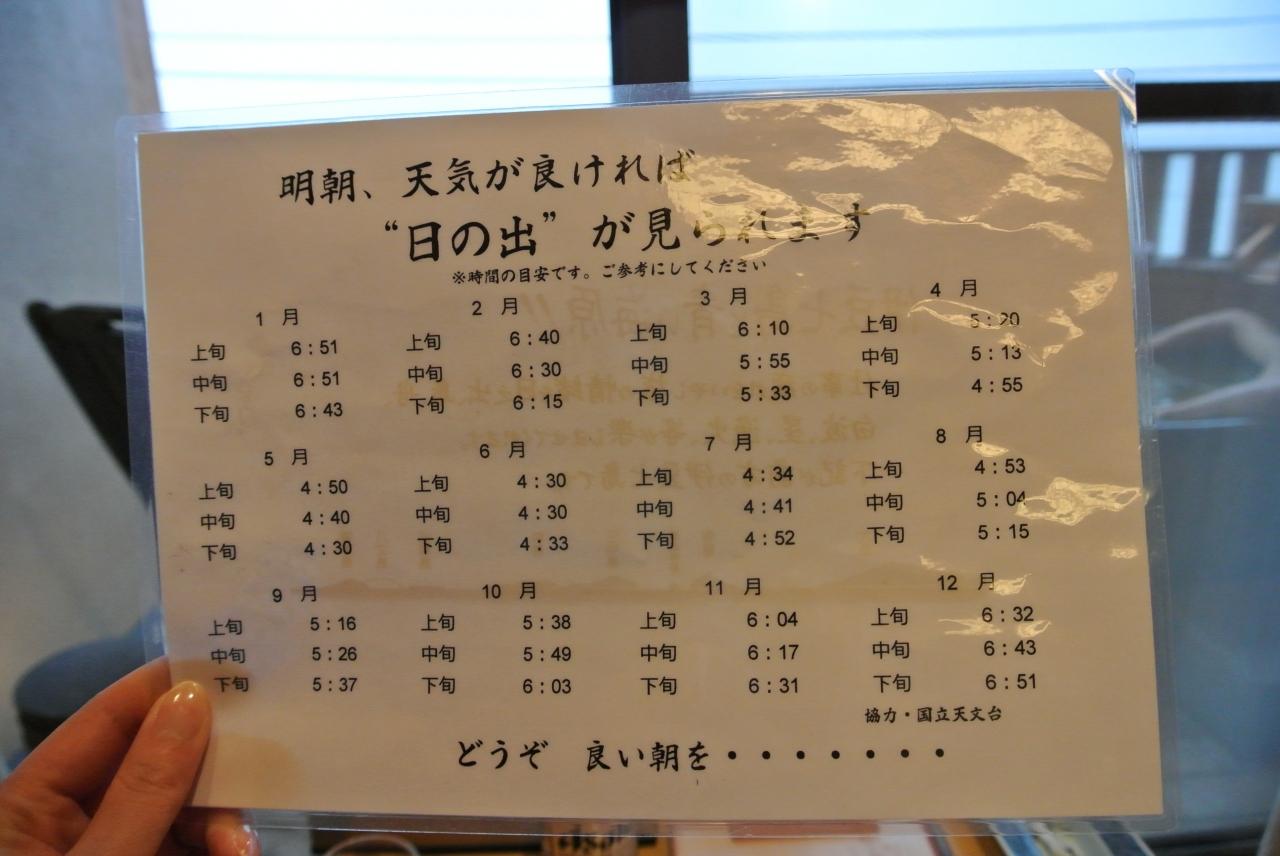 明朝、天気が良ければ
“日の出”が見られます
※時間の目安です。ご参考にしてください
1 月 2 月 3 月 4 月
上旬 6:51 上旬 6:40 上旬 6:10 上旬 5:20
中旬 6:51 中旬 6:30 中旬 5:55 中旬 5:13
下旬 6:43 下旬 6:15 下旬 5:33 下旬 4:55
5 月 6 月 7 月 8 月
上旬 4:50 上旬 4:30 上旬 4:34 上旬 4:53
中旬 4:40 中旬 4:30 中旬 4:41 中旬 5:04
下旬 4:30 下旬 4:33 下旬 4:52 下旬 5:15
9 月 10 月 11 月 12 月
上旬 5:16 上旬 5:38 上旬 6:04 上旬 6:32
中旬 5:26 中旬 5:49 中旬 6:17 中旬 6:43
下旬 5:37 下旬 6:03 下旬 6:31 下旬 6:51
協力・国立天文台
どうぞ 良い朝を・・・・・・・・